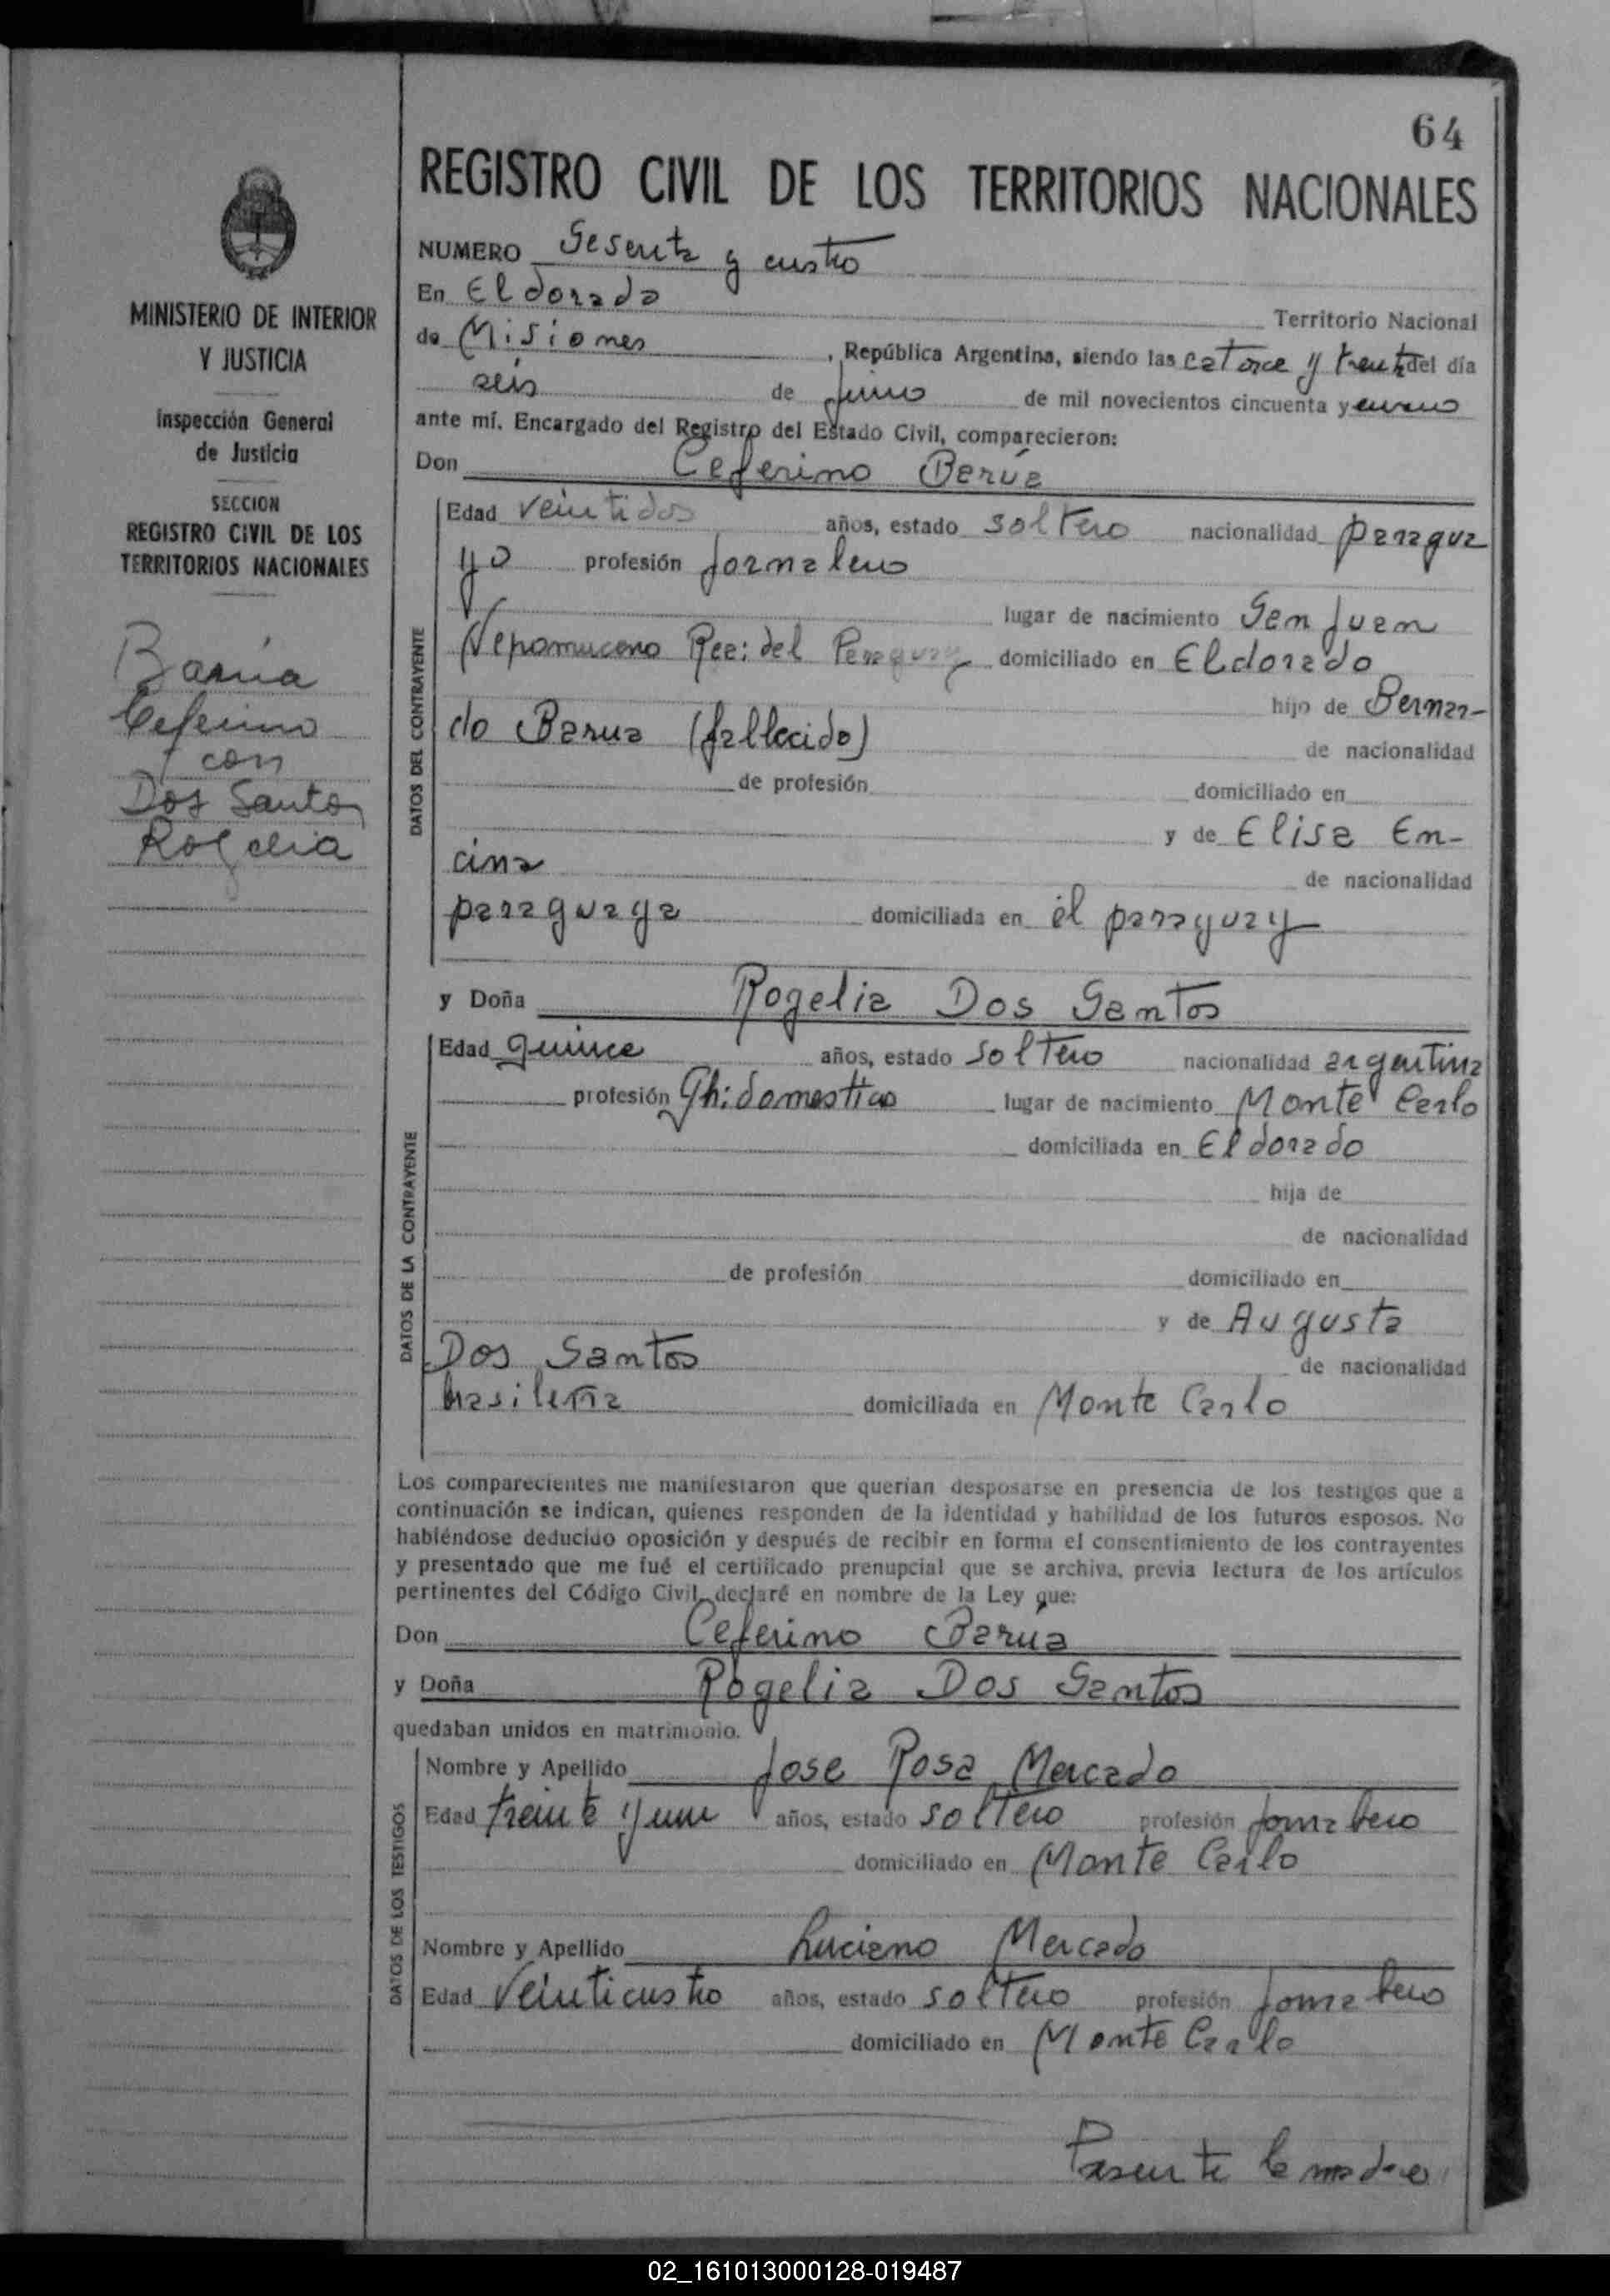 64
REGISTRO CIVIL DE LOS TERRITORIOS NACIONALES
MINISTERIO DE INTERIOR
Y JUSTICIA
Inspección General
de Justicia
SECCION
REGISTRO CIVIL DE LOS
TERRITORIOS NACIONALES
Barúa
Ceferino
con
Dos Santos
Rogelia
NUMERO Sesenta y cuatro
En Eldorado Territorio Nacional
de Misiones, República Argentina, siendo las catorce y treinta del día
seis de de mil novecientos cincuenta y
ante mí, Encargado del Registro del Estado Civil, comparecieron:
Don Ceferino Barúa
DATOS DEL CONTRAYENTE
Edad veintidos años, estado soltero nacionalidad paragua
yo profesión jornalero
lugar de nacimiento San Juan
Nepomuceno del Paraguay domiciliado en Eldorado
hijo de Bernar-
do Barua (fallecido) de nacionalidad
de profesión domiciliado en
y de Elisa En-
cina de nacionalidad
paraguaya domiciliada en el paraguay
y Doña Rogelia Dos Santos
DATOS DE LA CONTRAYENTE
Edad quince años, estado soltero nacionalidad argentina
profesión lugar de nacimiento Monte Carlo
domiciliada en Eldorado
hija de
de nacionalidad
de profesión domiciliado en
y de Augusta
Dos Santos de nacionalidad
brasileña domiciliada en Monte Carlo
Los comparecientes me manifestaron que querían desposarse en presencia de los testigos que a
continuación se indican, quienes responden de la identidad y habilidad de los futuros esposos. No
habiéndose deducido oposición y después de recibir en forma el consentimiento de los contrayentes
y presentado que me fué el certificado prenupcial que se archiva, previa lectura de los artículos
pertinentes del Código Civil, declaré en nombre de la Ley que:
Don Ceferino Barua
y Doña Rogelia Dos Santos
quedaban unidos en matrimonio.
DATOS DE LOS TESTIGOS
Nombre y Apellido Jose Rosa Mercado
Edad treinta y un años, estado soltero profesión jornalero
domiciliado en Monte Carlo
Nombre y Apellido Luciano Mercado
Edad veinticuatro años, estado soltero profesión jornalero
domiciliado en Monte Carlo
Presente la madre
02_161013000128-019487